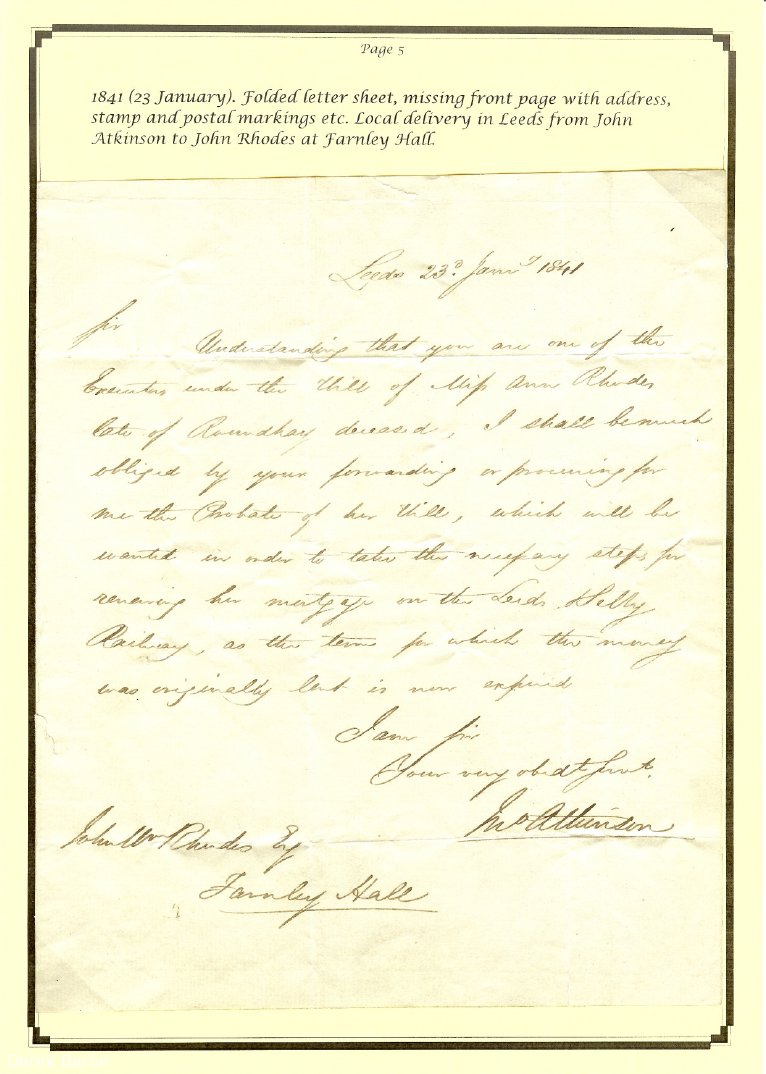 Page 5
1841 (23 January). Folded letter sheet, missing front page with address,
stamp and postal markings etc. Local delivery in Leeds from John
Atkinson to John Rhodes at Farnley Hall.
Leeds 23d. Jany 1841
Sir
Understanding that you are one of the
Executors under the Will of Miss Ann Rhodes
late of Roundhay deceased, I shall be much
obliged by your forwarding or procuring for
me the Probate of her Will, which will be
wanted in order to take the necessary steps for
renewing her mortgage on the Leeds & Selby
Railway, as the term for which the money
was originally lent is now expired
I am Sir
Your very obedt Servt.
Jno Atkinson
John Wm Rhodes Esq
Farnley Hall